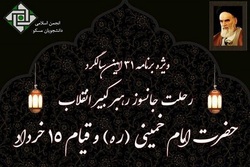 انجمن اسلامی
دانشجویان مسکو
ویژه برنامه ۳۱ امین سالگرد
رحلت جانسوز رهبر کبیر انقلاب
حضرت امام خمینی (ره) و قیام ۱۵ خرداد